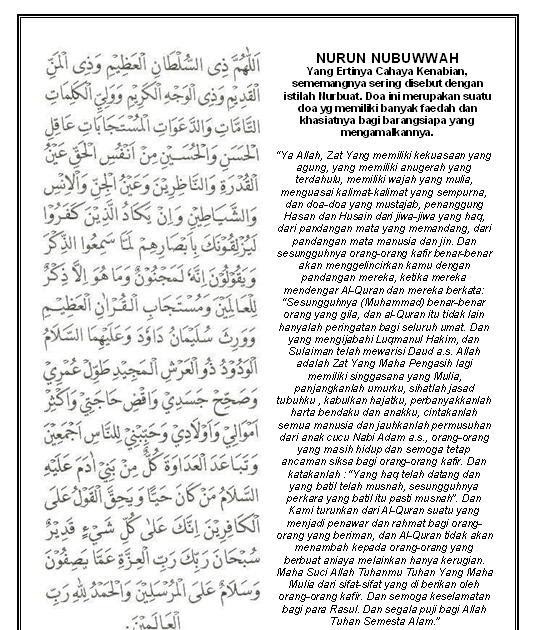 اَللّٰهُمَّ ذِى السُّلْطَانِ الْعَظِيْمِ وَذِى الْمَنِّ
الْقَدِيْمِ وَذِى الْوَجْهِ الْكَرِيْمِ وَوَلِيِّ الْكَلِمَاتِ
التَّامَّاتِ وَالدَّعَوَاتِ الْمُسْتَجَابَاتِ عَاقِلِ
الْحَسَنِ وَالْحُسَيْنِ مِنْ اَنْفُسِ الْحَقِّ عَيْنِ
الْقُدْرَةِ وَالنَّاظِرِيْنَ وَعَيْنِ الْجِنِّ وَالْاِنْسِ
وَالشَّيَاطِيْنِ وَاِنْ يَكَادُ الَّذِيْنَ كَفَرُوْا
لَيُزْلِقُوْنَكَ بِاَبْصَارِهِمْ لَمَّا سَمِعُوا الذِّكْرَ
وَيَقُوْلُوْنَ اِنَّهُ لَمَجْنُوْنٌ وَمَا هُوَ اِلَّا ذِكْرٌ
لِلْعَالَمِيْنَ وَمُسْتَجَابِ الْقُرْاٰنِ الْعَظِيْمِ
وَوَرِثَ سُلَيْمَانُ دَاوٗدَ وَعَلَيْهِمَا السَّلَامُ
الْوَدُوْدُ ذُو الْعَرْشِ الْمَجِيْدِ طَوِّلْ عُمْرِيْ
وَصَحِّحْ جَسَدِيْ وَاقْضِ حَاجَتِيْ وَاَكْثِرْ
اَمْوَالِيْ وَاَوْلَادِيْ وَحَبِّبْنِيْ لِلنَّاسِ اَجْمَعِيْنَ
وَتَبَاعَدِ الْعَدَاوَةَ كُلَّهَا مِنْ بَنِيْ اٰدَمَ عَلَيْهِ
السَّلَامُ مَنْ كَانَ حَيًّا وَيَحِقَّ الْقَوْلُ عَلَى
الْكَافِرِيْنَ اِنَّكَ عَلٰى كُلِّ شَيْءٍ قَدِيْرٌ
سُبْحَانَ رَبِّكَ رَبِّ الْعِزَّةِ عَمَّا يَصِفُوْنَ
وَسَلَامٌ عَلَى الْمُرْسَلِيْنَ وَالْحَمْدُ لِلّٰهِ رَبِّ
الْعَالَمِيْنَ.
NURUN NUBUWWAH
Yang Ertinya Cahaya Kenabian,
sememangnya sering disebut dengan
istilah Nurbuat. Doa ini merupakan suatu
doa yg memiliki banyak faedah dan
khasiatnya bagi barangsiapa yang
mengamalkannya.
"Ya Allah, Zat Yang memiliki kekuasaan yang
agung, yang memiliki anugerah yang
terdahulu, memiliki wajah yang mulia,
menguasai kalimat-kalimat yang sempurna,
dan doa-doa yang mustajab, penanggung
Hasan dan Husain dari jiwa-jiwa yang haq,
dari pandangan mata yang memandang, dari
pandangan mata manusia dan jin. Dan
sesungguhnya orang-orang kafir benar-benar
akan menggelincirkan kamu dengan
pandangan mereka, ketika mereka
mendengar Al-Quran dan mereka berkata:
"Sesungguhnya (Muhammad) benar-benar
orang yang gila, dan al-Quran itu tidak lain
hanyalah peringatan bagi seluruh umat. Dan
yang mengijabahi Luqmanul Hakim, dan
Sulaiman telah mewarisi Daud a.s. Allah
adalah Zat Yang Maha Pengasih lagi
memiliki singgasana yang Mulia,
panjangkanlah umurku, sihatlah jasad
tubuhku , kabulkan hajatku, perbanyakkanlah
harta bendaku dan anakku, cintakanlah
semua manusia dan jauhkanlah permusuhan
dari anak cucu Nabi Adam a.s., orang-orang
yang masih hidup dan semoga tetap
ancaman siksa bagi orang-orang kafir. Dan
katakanlah : "Yang haq telah datang dan
yang batil telah musnah, sesungguhnya
perkara yang batil itu pasti musnah". Dan
Kami turunkan dari Al-Quran suatu yang
menjadi penawar dan rahmat bagi orang-
orang yang beriman, dan Al-Quran tidak akan
menambah kepada orang-orang yang
berbuat aniaya melainkan hanya kerugian.
Maha Suci Allah Tuhanmu Tuhan Yang Maha
Mulia dari sifat-sifat yang di berikan oleh
orang-orang kafir. Dan semoga keselamatan
bagi para Rasul. Dan segala puji bagi Allah
Tuhan Semesta Alam."